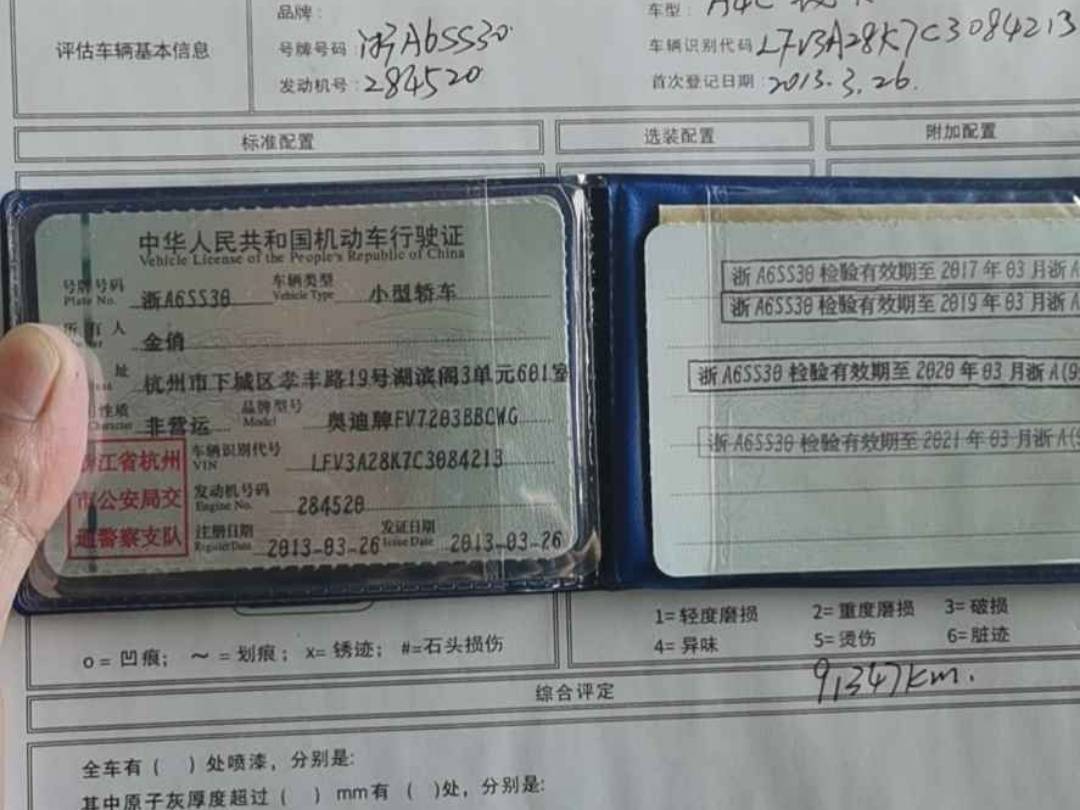 品牌:
车型:
评估车辆基本信息
号牌号码:浙A6SS30
车辆识别代码 LFV3A28K7C3084213
发动机号:284520
首次登记日期:2013.3.26.
标准配置
选装配置
附加配置
中华人民共和国机动车行驶证
Vehicle License of the People's Republic of China
号牌号码 浙A6SS30 车辆类型 小型轿车
Plate No. Vehicle Type
所有人 金俏
址 杭州市下城区孝丰路19号湖滨阁3单元601室
性质 非营运 品牌型号 奥迪牌FV7203BBCWG
Character Model
浙江省杭州
市公安局交
通警察支队
车辆识别代号 LFV3A28K7C3084213
VIN
发动机号码 284520
Engine No.
注册日期 2013-03-26 发证日期 2013-03-26
Register Date Issue Date
浙A6SS30 检验有效期至 2017 年 03 月浙A
浙A6SS30 检验有效期至 2019 年 03 月浙A
浙A6SS30 检验有效期至 2020 年 03 月浙A(9
浙A6SS30 检验有效期至 2021 年 03 月浙A(9
o = 凹痕; ~ = 划痕; x= 锈迹; #=石头损伤
1= 轻度磨损 2= 重度磨损 3= 破损
4= 异味 5= 烫伤 6= 脏迹
综合评定
91347km.
全车有( )处喷漆,分别是:
其中原子灰厚度超过( )mm有( )处,分别是: